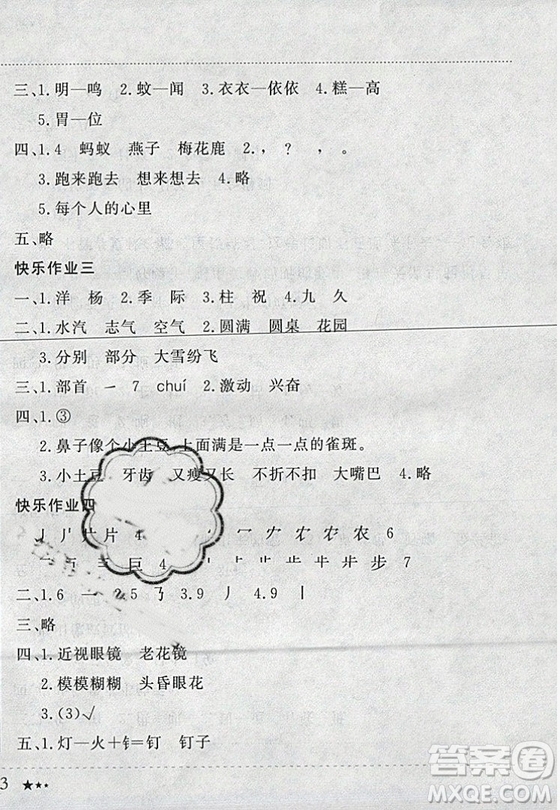 三、1.明—鸣 2.蚊—闻 3.衣衣—依依 4.糕—高
5.胃—位
四、1.4 蚂蚁 燕子 梅花鹿 2., ? , 。
3.跑来跑去 想来想去 4.略
5.每个人的心里
五、略
快乐作业三
一、1.洋 杨 2.季 际 3.柱 祝 4.九 久
二、1.水汽 志气 空气 2.圆满 圆桌 花园
3.分别 部分 大雪纷飞
三、1.部首 一 7 chuí 2.激动 兴奋
四、1.③
2.鼻子像个小土豆,上面满是一点一点的雀斑。
3.小土豆 牙齿 又瘦又长 不折不扣 大嘴巴 4.略
快乐作业四
丿 丿丨 片 片 4 农 农 农 6
巨 4 步 步 7
二、1.6 一 2.5 ㇌ 3.9 丿 4.9 丨
三、略
四、1.近视眼镜 老花镜
2.模模糊糊 头昏眼花
3.(3)√
五、1.灯—火+钅=钉 钉子
3 ★★★
答案圈
MXQE.COM